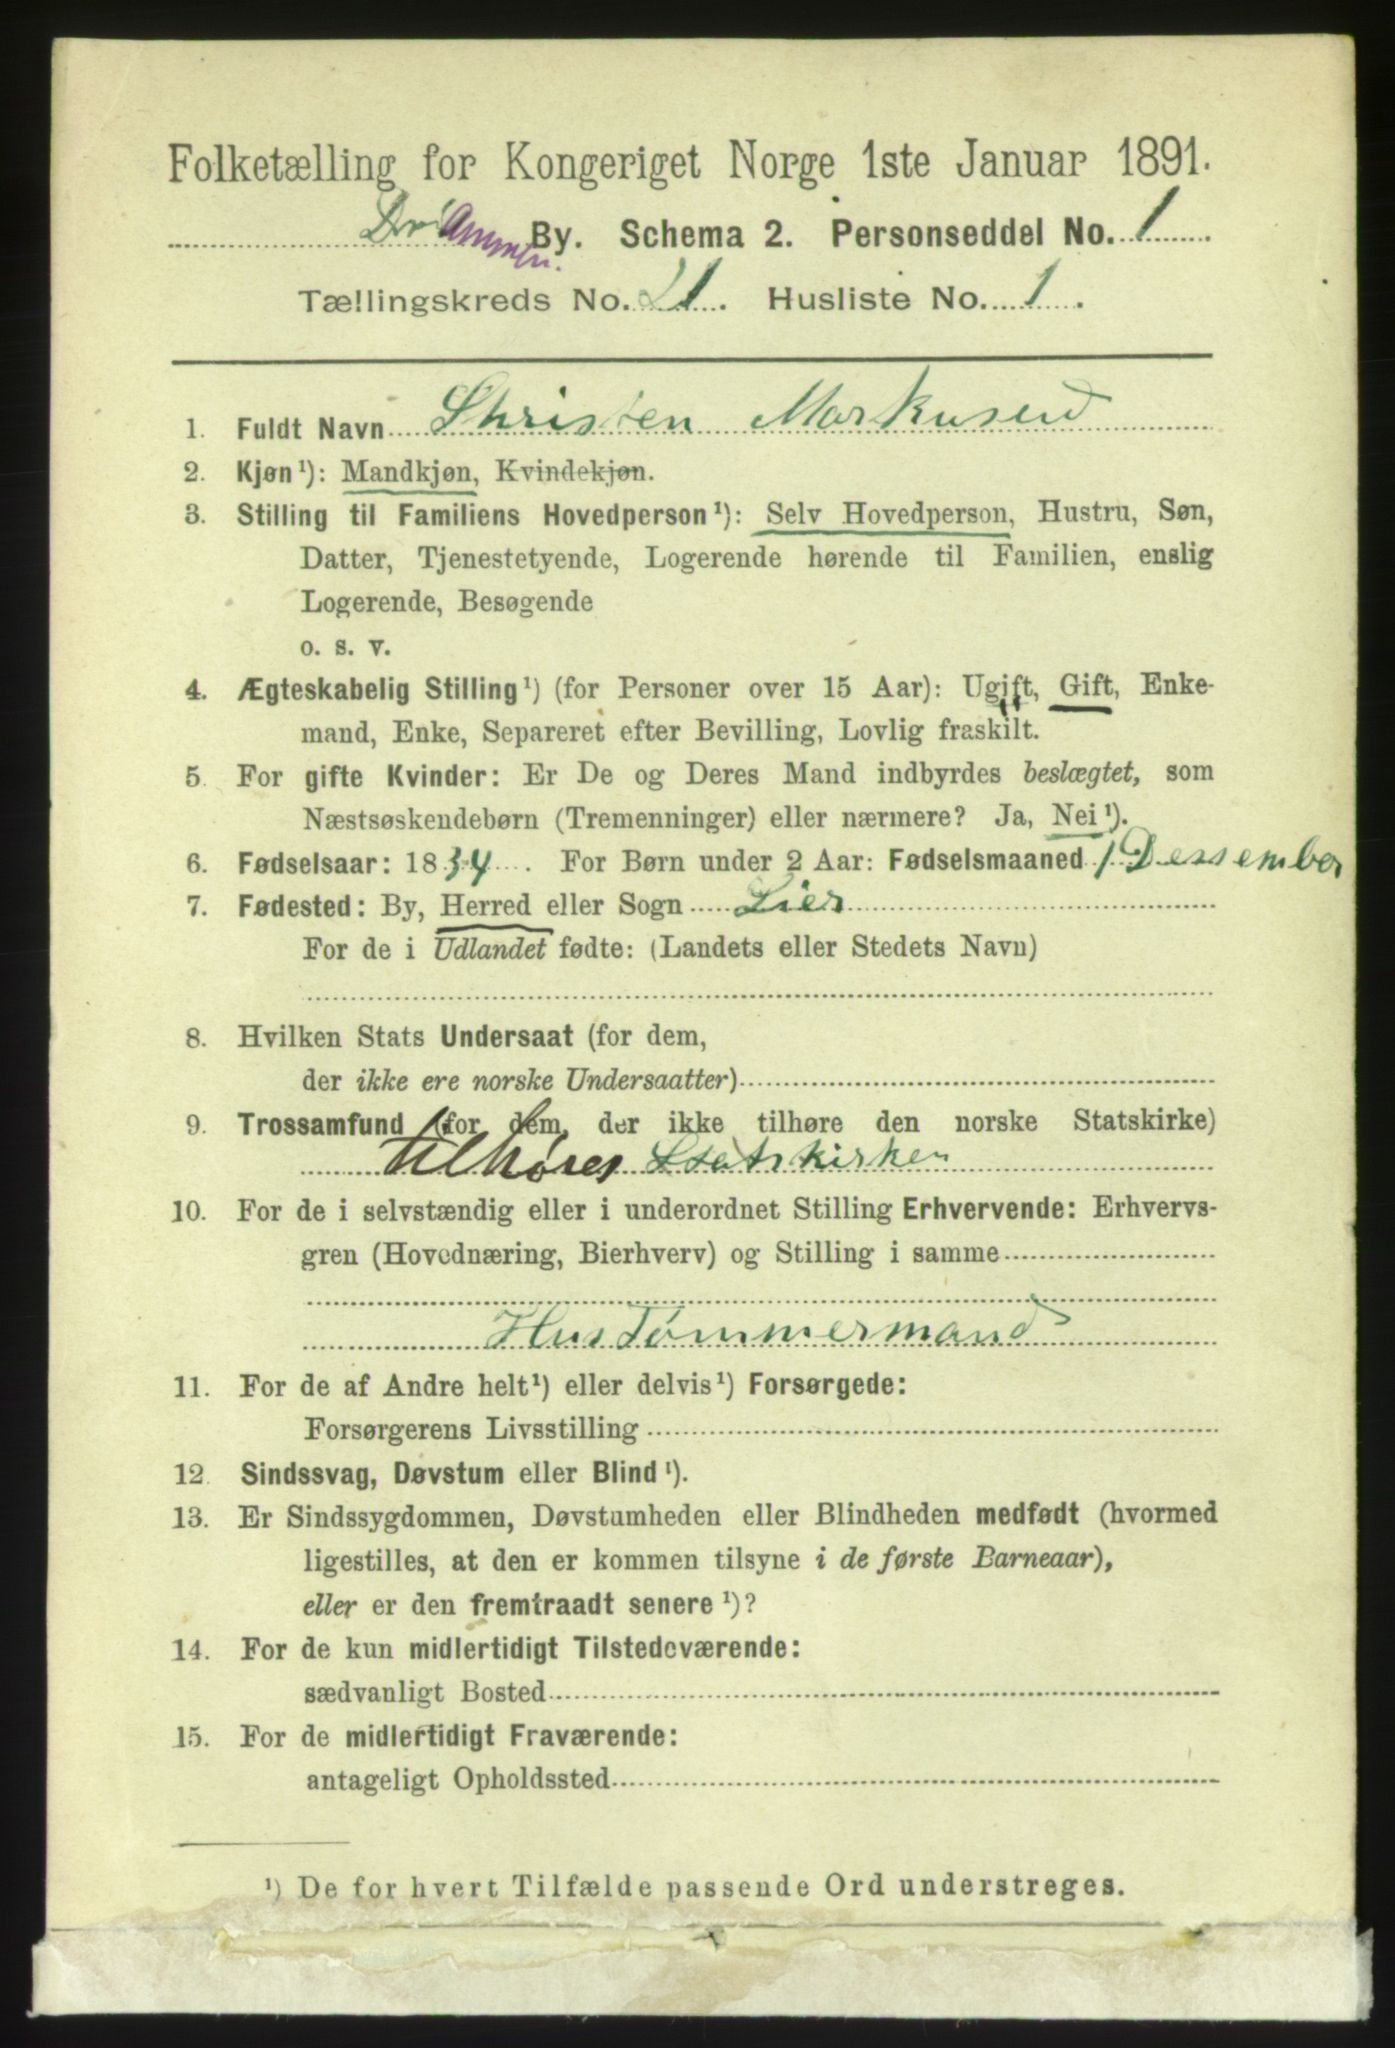 Folketælling for Kongeriget Norge 1ste Januar 1891.
Drammen. By. Schema 2. Personseddel No. 1
Tællingskreds No. 21. Husliste No. 1.
1. Fuldt Navn Christen Markusen
2. Kjøn¹): Mandkjøn, Kvindekjøn.
3. Stilling til Familiens Hovedperson¹): Selv Hovedperson, Hustru, Søn,
Datter, Tjenestetyende, Logerende hørende til Familien, enslig
Logerende, Besøgende
o. s. v.
4. Ægteskabelig Stilling¹) (for Personer over 15 Aar): Ugift, Gift, Enke-
mand, Enke, Separeret efter Bevilling, Lovlig fraskilt.
5. For gifte Kvinder: Er De og Deres Mand indbyrdes beslægtet, som
Næstsøskendebørn (Tremenninger) eller nærmere? Ja, Nei¹).
6. Fødselsaar: 1834. For Børn under 2 Aar: Fødselsmaaned 1 Dessember
7. Fødested: By, Herred eller Sogn Lier
For de i Udlandet fødte: (Landets eller Stedets Navn)
8. Hvilken Stats Undersaat (for dem,
der ikke ere norske Undersaatter)
9. Trossamfund (for dem, der ikke tilhøre den norske Statskirke)
tilhører Statskirken
10. For de i selvstændig eller i underordnet Stilling Erhvervende: Erhvervs-
gren (Hovednæring, Bierhverv) og Stilling i samme
Hustømmermand
11. For de af Andre helt¹) eller delvis¹) Forsørgede:
Forsørgerens Livsstilling
12. Sindssvag, Døvstum eller Blind¹).
13. Er Sindssygdommen, Døvstumheden eller Blindheden medfødt (hvormed
ligestilles, at den er kommen tilsyne i de første Barneaar),
eller er den fremtraadt senere¹)?
14. For de kun midlertidigt Tilstedeværende:
sædvanligt Bosted
15. For de midlertidigt Fraværende:
antageligt Opholdssted
¹) De for hvert Tilfælde passende Ord understreges.